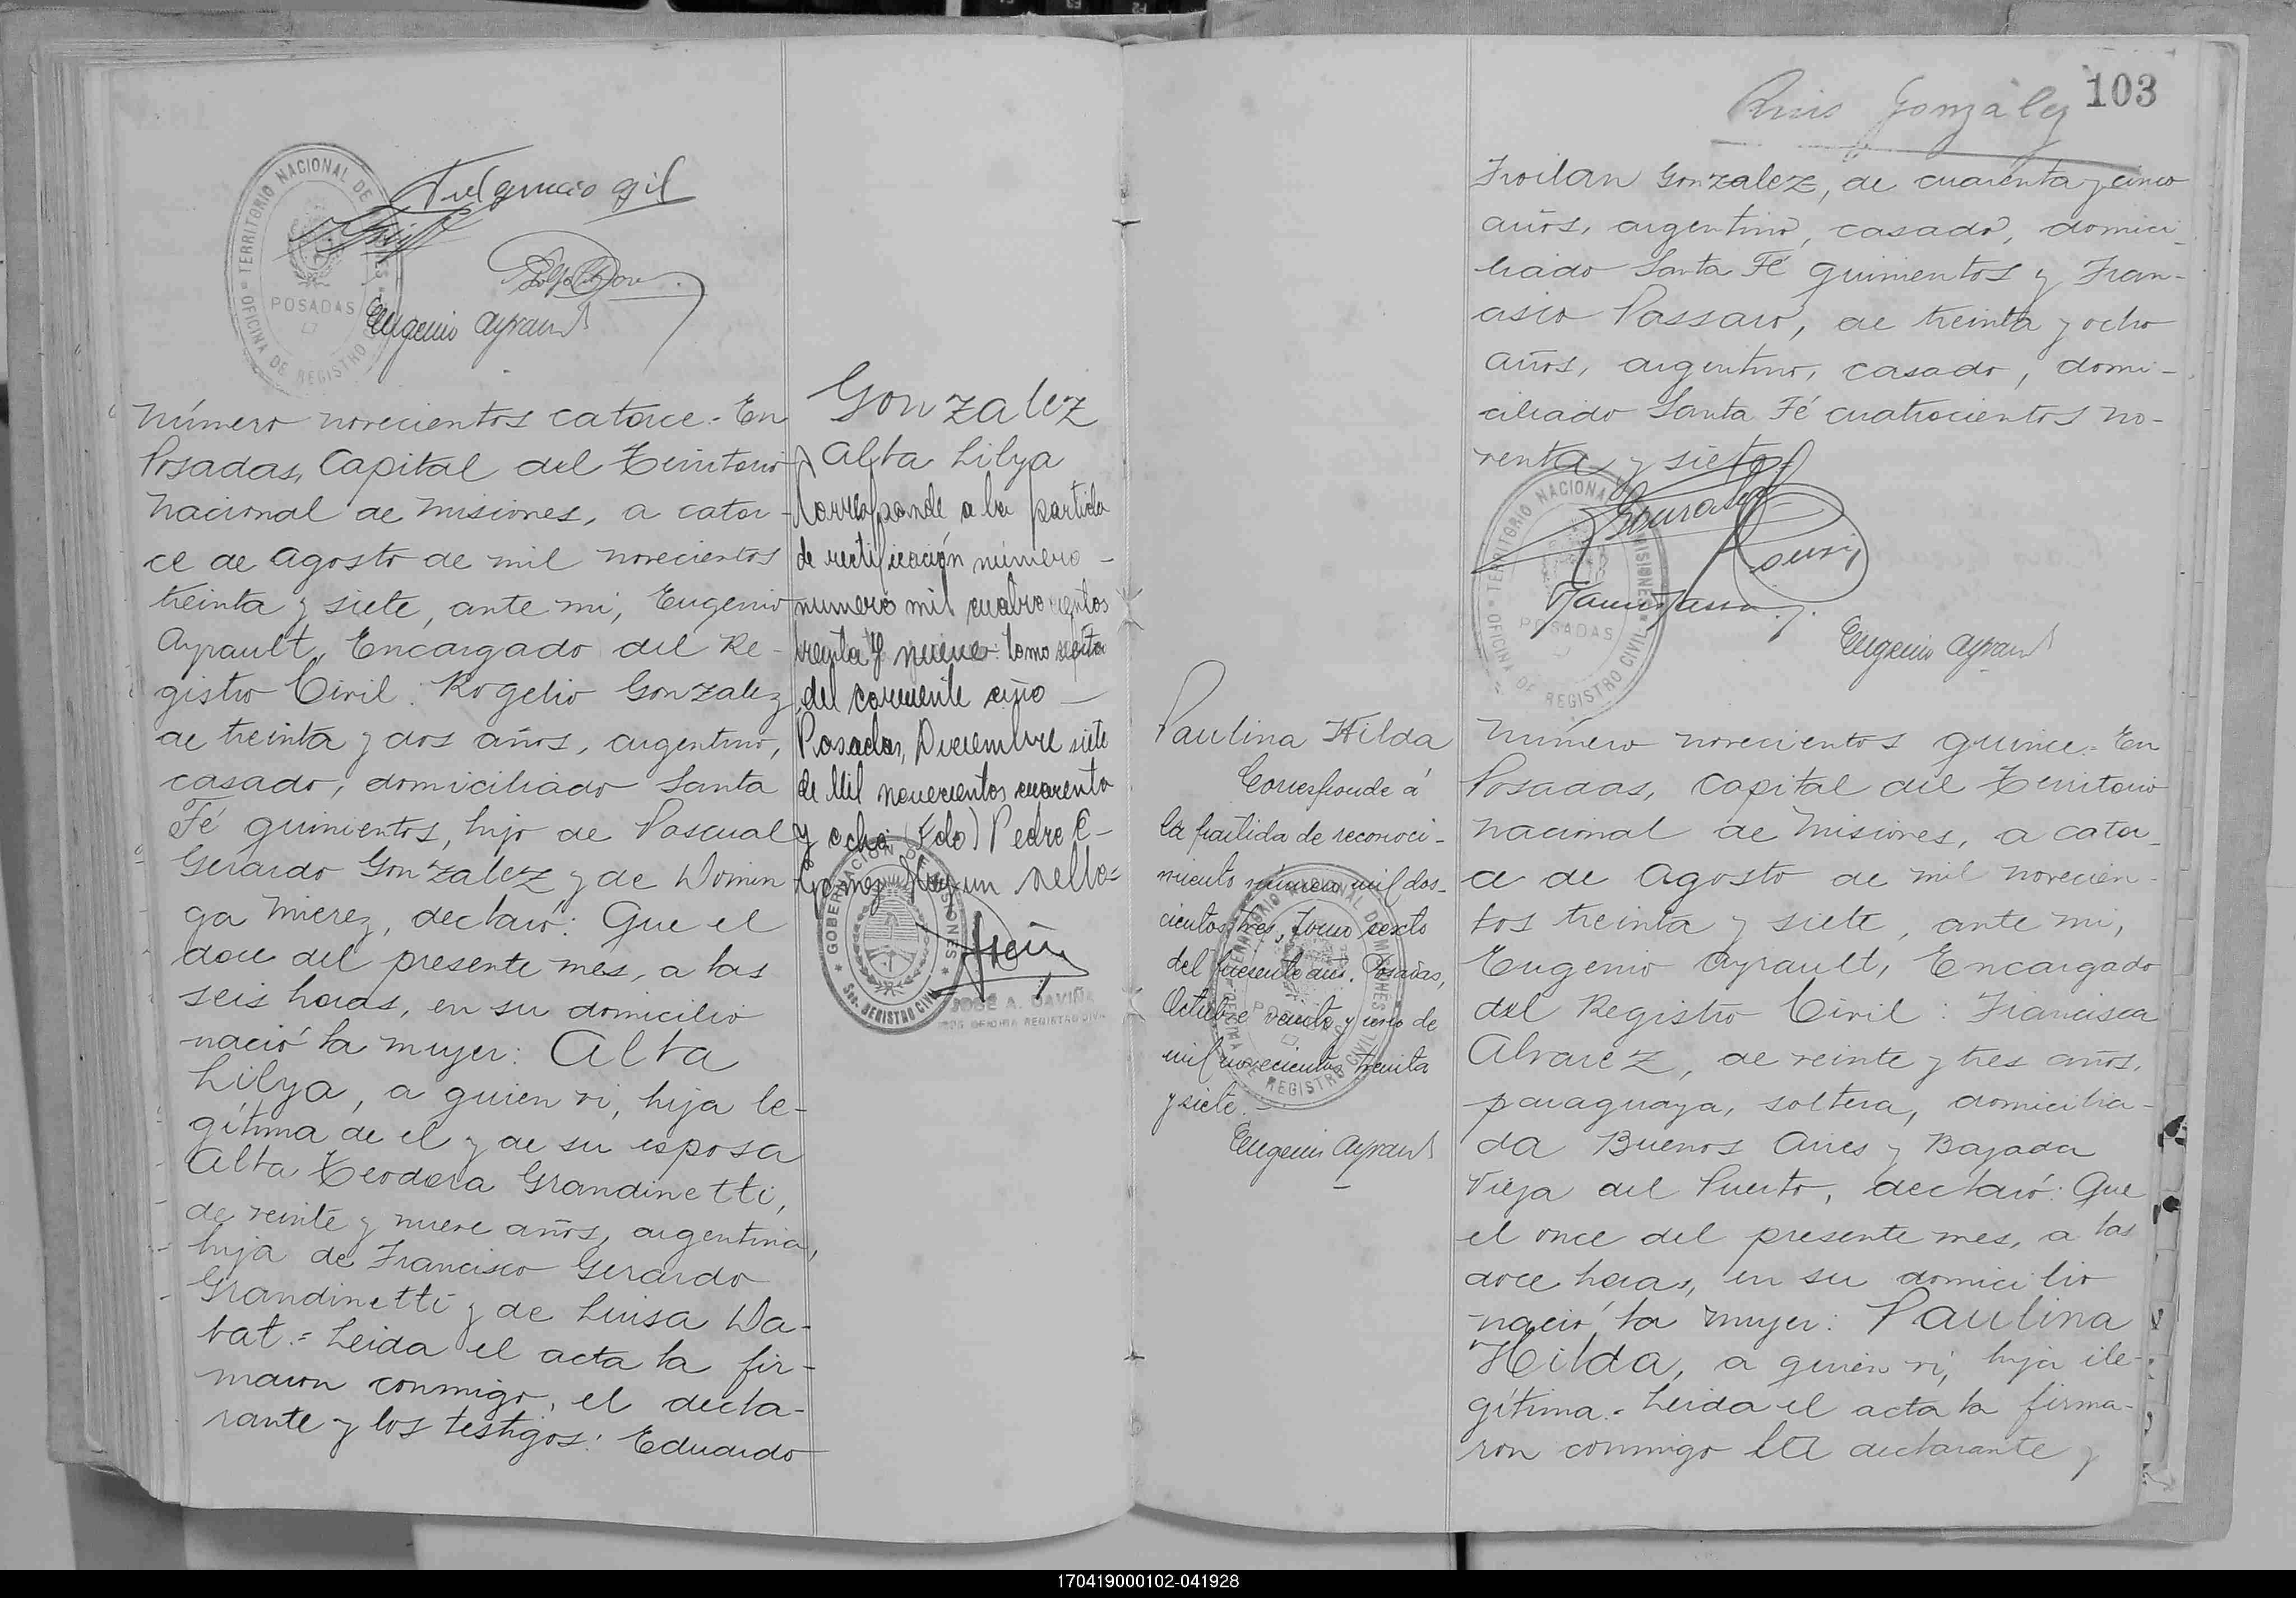 Fulgencio Gil
TERRITORIO NACIONAL DE MISIONES
POSADAS
OFICINA DE REGISTRO
Eugenio Ayrault
Número novecientos catorce.- En
Posadas, Capital del Territorio
Nacional de Misiones, a cator-
ce de Agosto de mil novecientos
treinta y siete, ante mi, Eugenio
Ayrault, Encargado del Re-
gistro Civil: Rogelio Gonzalez,
de treinta y dos años, argentino,
casado, domiciliado Santa
Fé quinientos, hijo de Pascual
Gerardo Gonzalez y de Domin-
ga Mierez, declaró: Que el
doce del presente mes, a las
seis horas, en su domicilio
nació la mujer: Alba
Lilya, a quien vi, hija le-
gítima de el y de su esposa
Alba Teodora Grandinetti,
de veinte y nueve años, argentina,
hija de Francisco Gerardo
Grandinetti y de Luisa Da-
bat.= Leida el acta la fir-
maron conmigo, el decla-
rante y los testigos: Eduardo
Gonzalez
Alba Lilya
Corresponde a la partida
de rectificación número -
numero mil cuatrocientos
treinta y nueve: tomo septimo
del corriente año -
Posadas, Diciembre siete
de Mil novecientos cuarenta
y ocho (fdo) Pedro C-
Gomez Hay un sello=
GOBERNACION DE MISIONES
Sec. REGISTRO CIVIL
JOSÉ A. DAVIÑA
OFICINA REGISTRO CIVIL
103
Ruis González
Froilan Gonzalez, de cuarenta y cinco
años, argentino, casado, domici-
liado Santa Fé quinientos y Fran-
cisco Passaro, de treinta y ocho
años, argentino, casado, domi-
ciliado Santa Fé cuatrocientos no-
venta y siete.
TERRITORIO NACIONAL DE MISIONES
POSADAS
OFICINA DE REGISTRO CIVIL
Eugenio Ayrault
Paulina Hilda
Corresponde á
la partida de reconoci-
miento número mil dos-
cientos tres, tomo sexto
del presente año. Posadas,
Octubre veinte y uno de
mil novecientos treinta
y siete.-
Eugenio Ayrault
Número novecientos quince.- En
Posadas, Capital del Territorio
Nacional de Misiones, a cator-
ce de Agosto de mil novecien-
tos treinta y siete, ante mi,
Eugenio Ayrault, Encargado
del Registro Civil: Francisca
Alvarez, de veinte y tres años,
paraguaya, soltera, domicilia-
da Buenos Aires y Bajada
Vieja del Puerto, declaró: Que
el once del presente mes, a las
doce horas, en su domicilio
nació la mujer: Paulina
Hilda, a quien vi, hija ile-
gítima.- Leida el acta la firma-
ron conmigo la declarante y
170419000102-041928